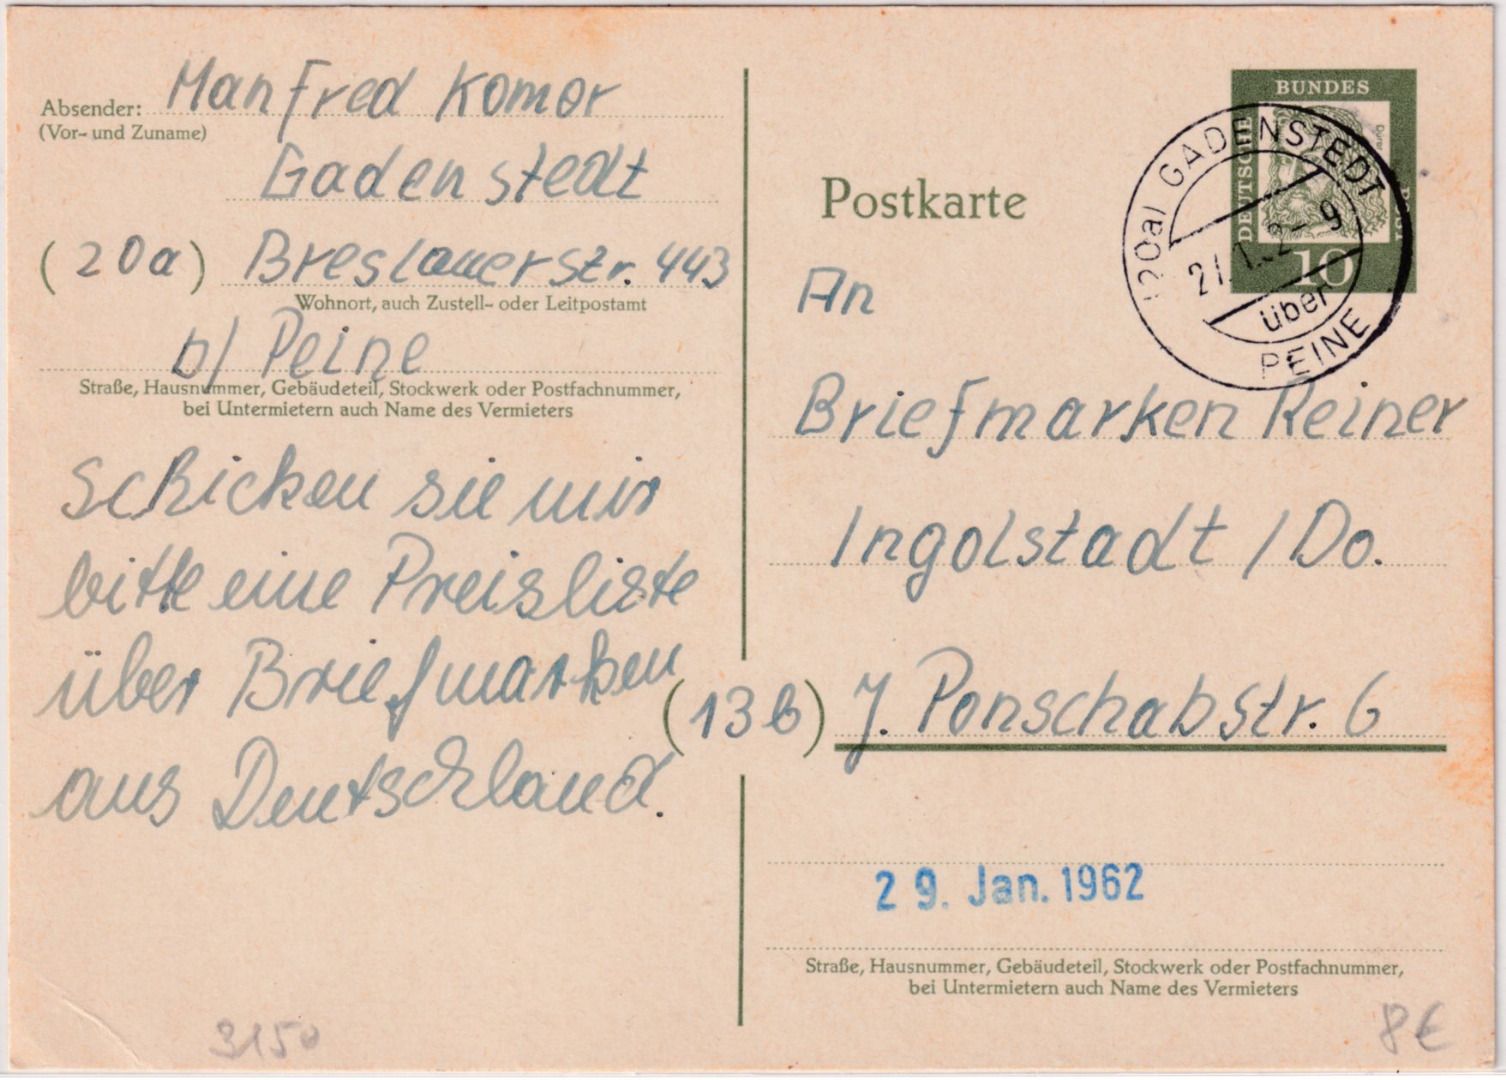 Absender: Manfred Komor
(Vor- und Zuname)
Gadenstedt
(20a) Breslauerstr. 443
Wohnort, auch Zustell- oder Leitpostamt
b/ Peine
Straße, Hausnummer, Gebäudeteil, Stockwerk oder Postfachnummer,
bei Untermietern auch Name des Vermieters
Schicken sie mir
bitte eine Preisliste
über Briefmarken
aus Deutschland.
3150
BUNDES
DEUTSCHE
POST
Dürer
10
(20a) GADENSTEDT
über
PEINE
Postkarte
An
Briefmarken Reiner
Ingolstadt / Do.
(13b) J. Ponschabstr. 6
29. Jan. 1962
Straße, Hausnummer, Gebäudeteil, Stockwerk oder Postfachnummer,
bei Untermietern auch Name des Vermieters
8€